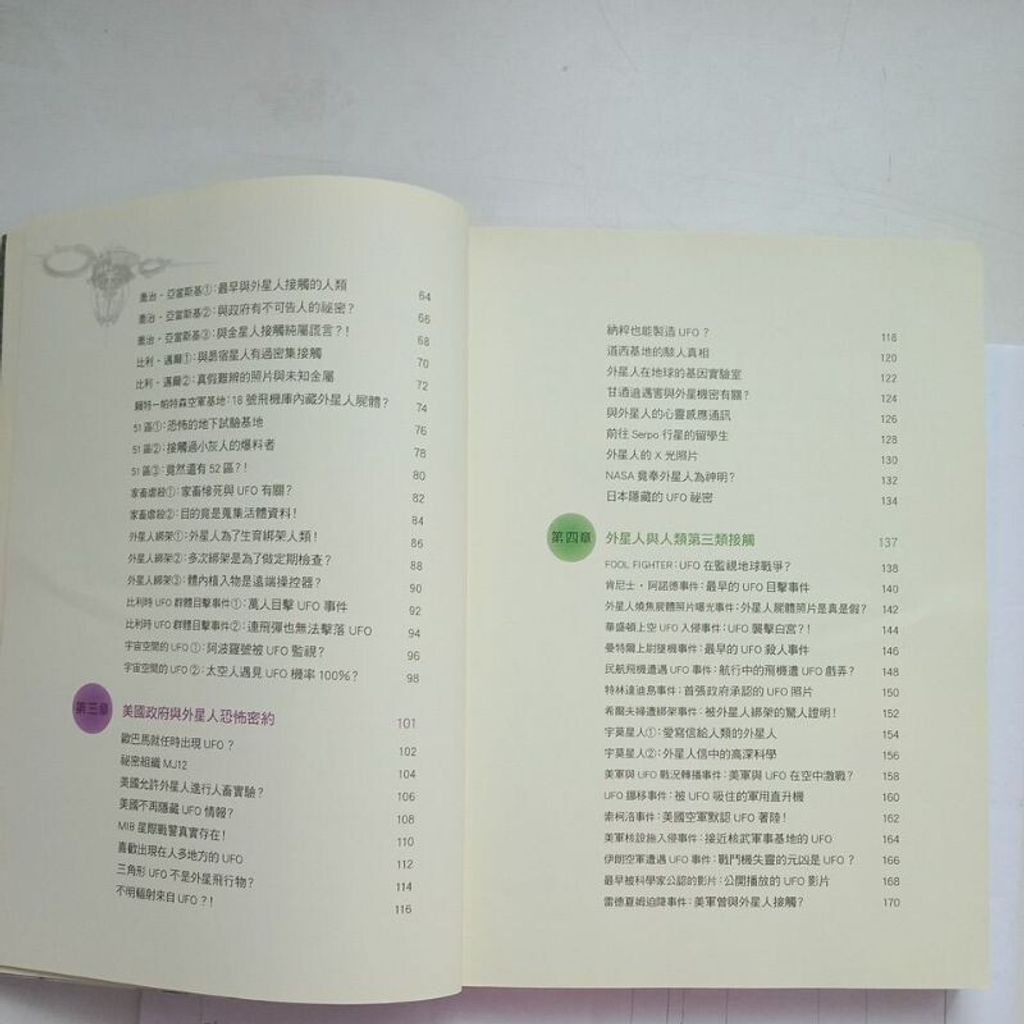 喬治・亞當斯基①:最早與外星人接觸的人類 64
喬治・亞當斯基②:與政府有不可告人的祕密? 66
喬治・亞當斯基③:與金星人接觸純屬謊言?! 68
比利・邁爾①:與昴宿星人有過密集接觸 70
比利・邁爾②:真假難辨的照片與未知金屬 72
爾特—帕特森空軍基地:18 號飛機庫內藏外星人屍體? 74
51 區①:恐怖的地下試驗基地 76
51 區②:接觸過小灰人的爆料者 78
51 區③:竟然還有 52 區?! 80
家畜虐殺①:家畜慘死與 UFO 有關? 82
家畜虐殺②:目的竟是蒐集活體資料! 84
外星人綁架①:外星人為了生育綁架人類! 86
外星人綁架②:多次綁架是為了做定期檢查? 88
外星人綁架③:體內植入物是遠端操控器? 90
比利時 UFO 群體目擊事件①:萬人目擊 UFO 事件 92
比利時 UFO 群體目擊事件②:連飛彈也無法擊落 UFO 94
宇宙空間的 UFO ①:阿波羅號被 UFO 監視? 96
宇宙空間的 UFO ②:太空人遇見 UFO 機率 100%? 98
第三章 美國政府與外星人恐怖密約 101
歐巴馬就任時出現 UFO ? 102
祕密組織 MJ12 104
美國允許外星人進行人畜實驗? 106
美國不再隱藏 UFO 情報? 108
MIB 星際戰警真實存在! 110
喜歡出現在人多地方的 UFO 112
三角形 UFO 不是外星飛行物? 114
不明輻射來自 UFO ?! 116
納粹也能製造 UFO ? 118
道西基地的駭人真相 120
外星人在地球的基因實驗室 122
甘迺迪遇害與外星機密有關? 124
與外星人的心靈感應通訊 126
前往 Serpo 行星的留學生 128
外星人的 X 光照片 130
NASA 竟奉外星人為神明? 132
日本隱藏的 UFO 祕密 134
第四章 外星人與人類第三類接觸 137
FOOL FIGHTER:UFO 在監視地球戰爭? 138
肯尼士・阿諾德事件:最早的 UFO 目擊事件 140
外星人燒焦屍體照片曝光事件:外星人屍體照片是真是假? 142
華盛頓上空 UFO 入侵事件:UFO 襲擊白宮?! 144
曼特爾上尉墜機事件:最早的 UFO 殺人事件 146
民航飛機遭遇 UFO 事件:航行中的飛機遭 UFO 戲弄? 148
特林達迪島事件:首張政府承認的 UFO 照片 150
希爾夫婦遭綁架事件:被外星人綁架的驚人證明! 152
宇莫星人①:愛寫信給人類的外星人 154
宇莫星人②:外星人信中的高深科學 156
美軍與 UFO 戰況轉播事件:美軍與 UFO 在空中激戰? 158
UFO 挪移事件:被 UFO 吸住的軍用直升機 160
索柯洛事件:美國空軍默認 UFO 著陸! 162
美軍核設施入侵事件:接近核武軍事基地的 UFO 164
伊朗空軍遭遇 UFO 事件:戰鬥機失靈的元凶是 UFO ? 166
最早被科學家公認的影片:公開播放的 UFO 影片 168
雷德夏姆迫降事件:美軍曾與外星人接觸? 170